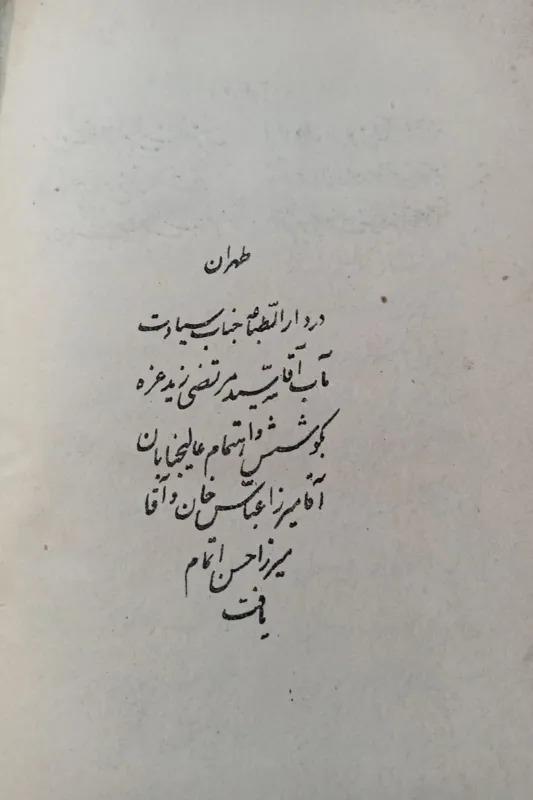 طهران
در دار الطباعه جناب سیادت
مآب آقا سید مرتضی زید عزه
بکوشش و اهتمام عالیجنابان
آقا میرزا عباس خان و آقا
میرزا حسن اتمام
یافت